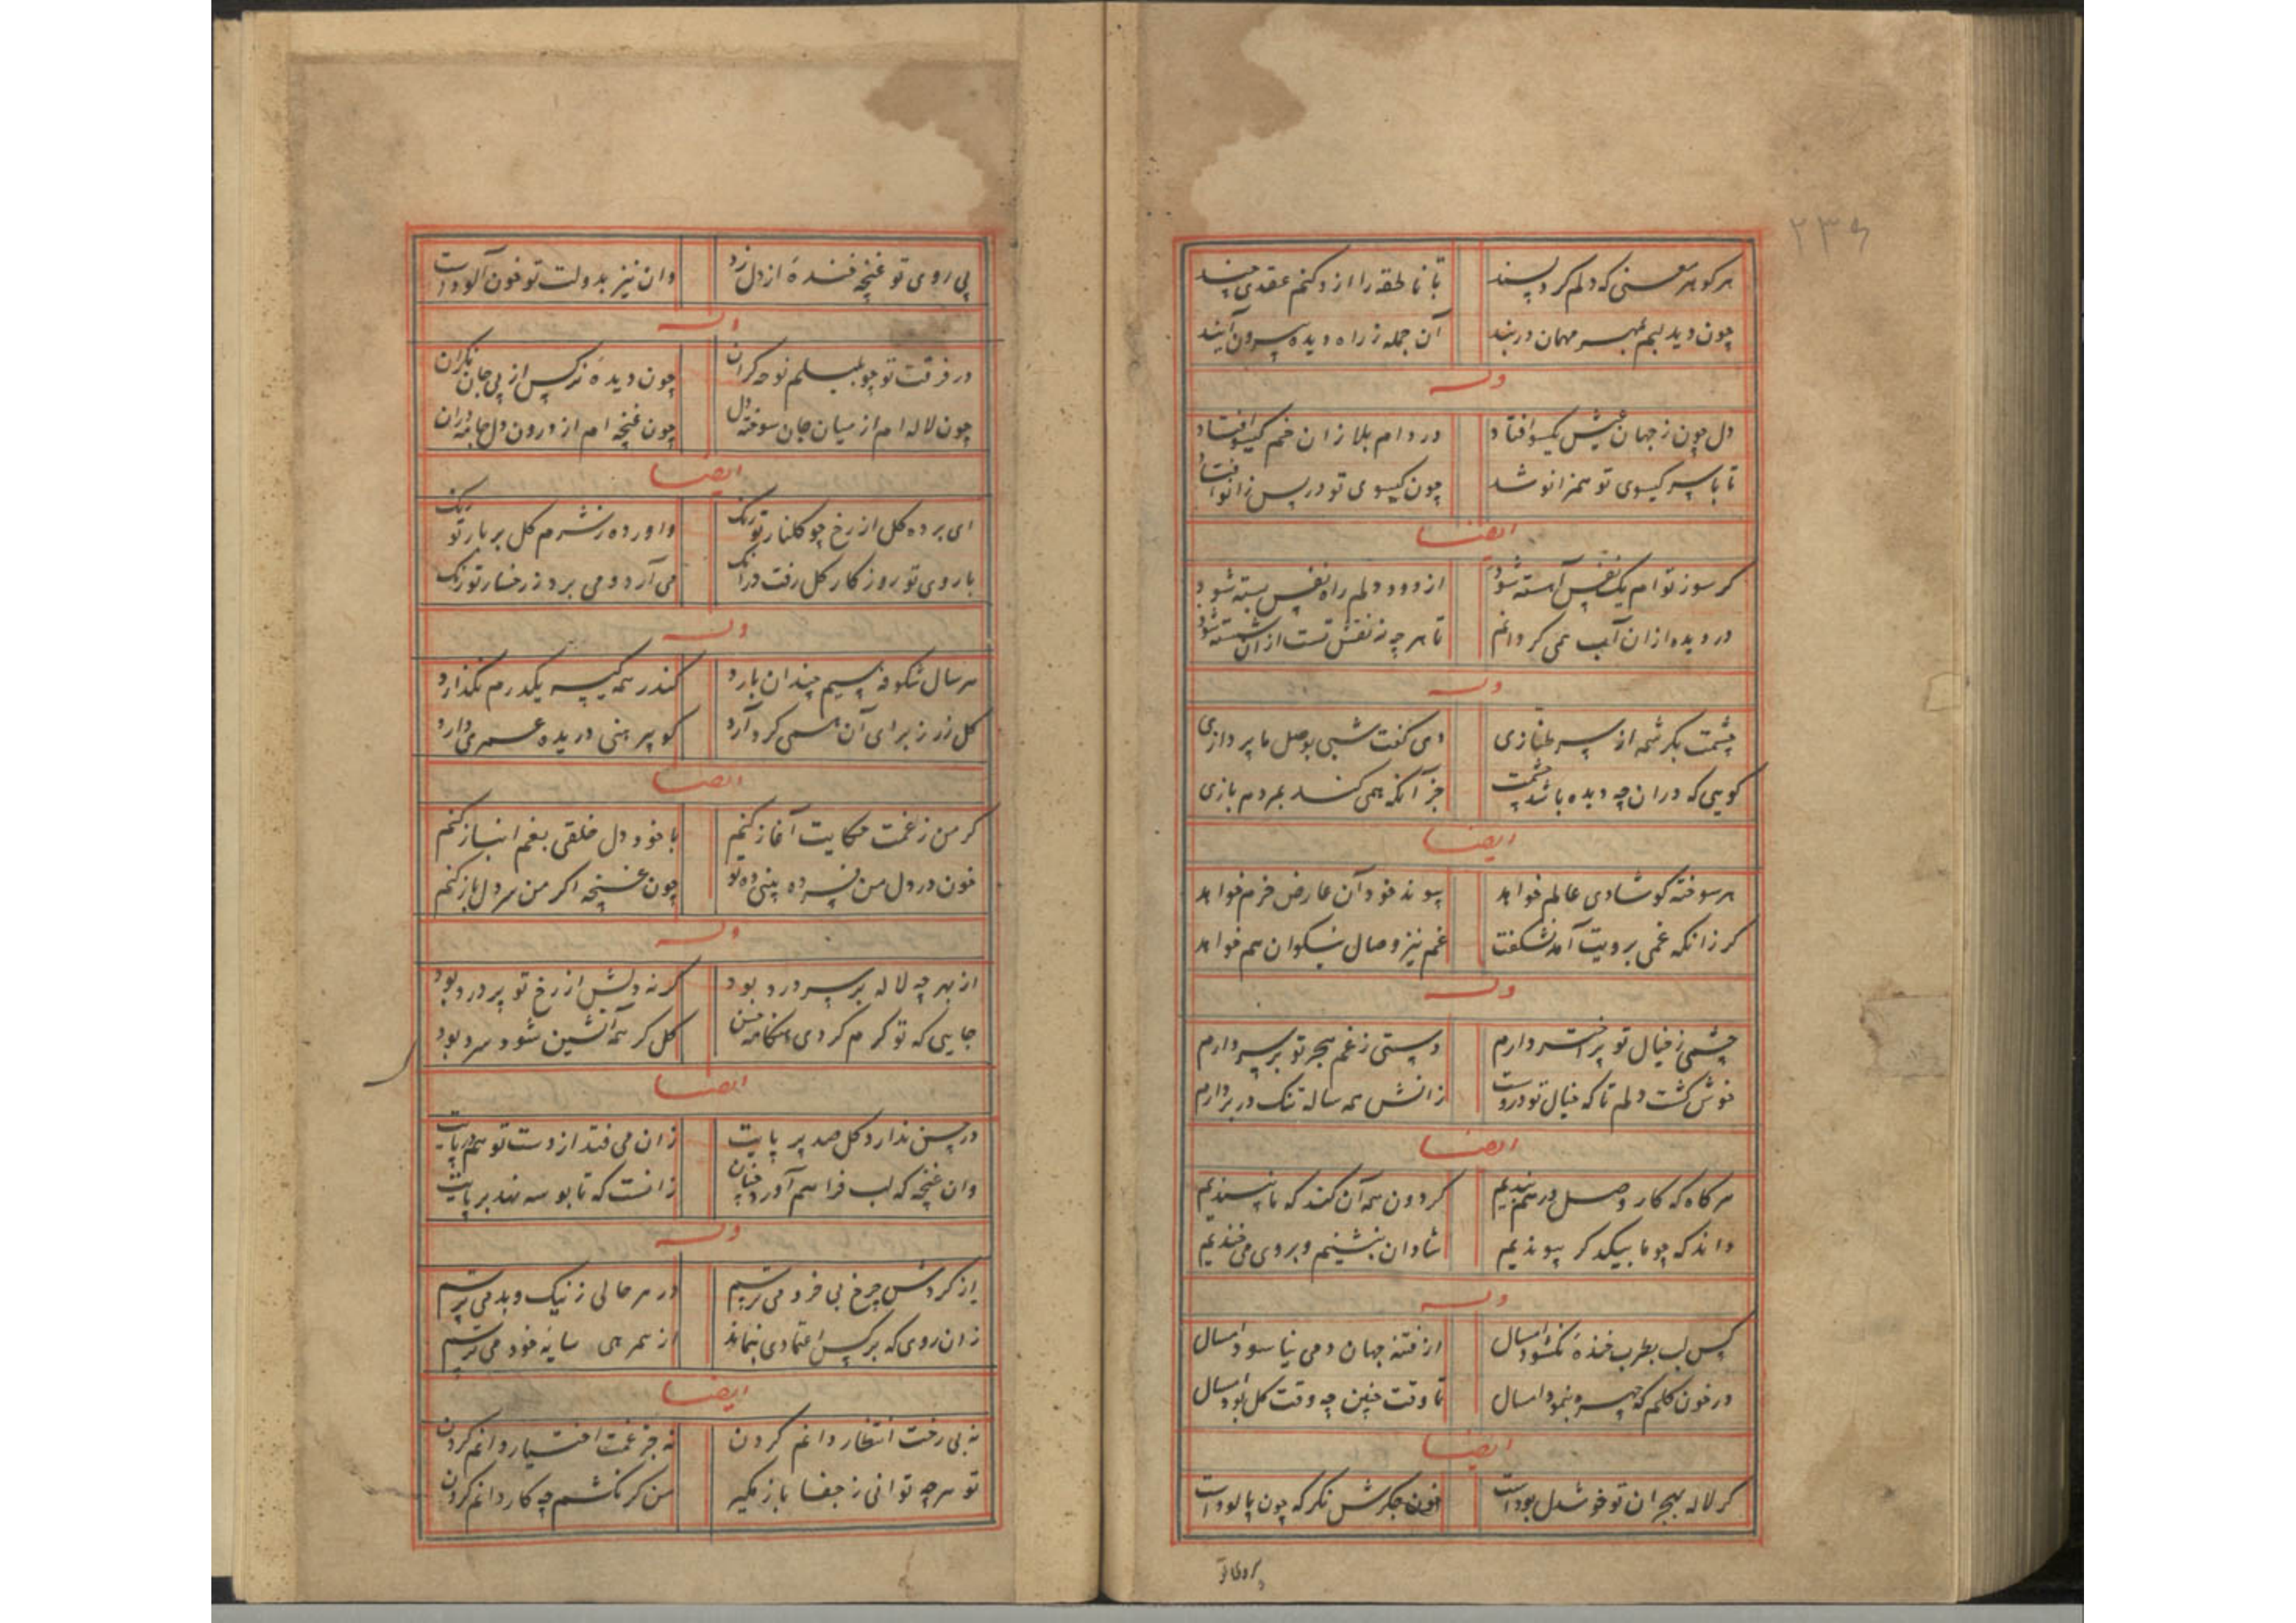 ۲۳۶
هر کوهر معنی که دلم کرد پسند
تا ناطقه را از و کنم عقدی چند
چون دید لبم بمهر مهمان دربند
آن جمله ز راه دیده بیرون آیند
وله
دل چون ز جهان عیش یکسو افتاد
در دام بلا زان خم کیسو افتاد
تا با سر کیسوی تو همزانو شد
چون کیسوی تو در پس زانو افتاد
ایضا
کر سوز توام یک نفس آهسته شود
از دود دلم راه نفس بسته شود
در دیده ازان آب همی کردانم
تا هر چه نه نقش تست ازان شسته شود
وله
چشمت بکرشمه از سر طنازی
دی کفت شبی بوصل ما پردازی
کویی که دران چه دیده باشد چشمت
جز آنکه همی کند بمردم بازی
ایضا
هر سوخته کو شادی عالم خواهد
پیوند خود آن عارض خرم خواهد
کر زانکه غمی برویت آمد نشکفت
غم نیز وصال نیکوان هم خواهد
وله
چشمی ز خیال تو پر اختر دارم
دستی ز غم هجر تو بر سر دارم
خوش کشت دلم تا که خیال تو دروست
زانش همه ساله تنک در بر دارم
ایضا
هر کاه که کار وصل در هم بندیم
کردون همه آن کند که ما نپسندیم
داند که چو ما بیکدکر پیوندیم
شادان بنشینیم و بروی می خندیم
وله
کس لب بطرب بخنده نکشود امسال
از فتنه جهان دمی نیاسود امسال
در خون کلم که چهره بنمود امسال
تا وقت چنین چه وقت کل بود امسال
ایضا
کر لاله بهجران تو خوشدل بودست
خون جکرش نکر که چون پالودست
بی روی تو
بی روی تو غنچه خندهٔ از دل زد
وان نیز بدولت تو خون آلودست
وله
در فرقت تو چو بلبلم نوحه کران
چون دیدهٔ نرکس از پی جان نکران
چون لاله ام از میان جان سوخته دل
چون غنچه ام از درون دل جامه دران
ایضا
ای برده کل از رخ چو کلنار تو رنک
واورده ز شرم کل بر بار تو رنک
با روی تو روز کار کل رفت در آنک
می آرد و می برد ز رخسار تو رنک
وله
هر سال شکوفه سیم چندان بارد
کندر همه کیسه یکدرم نکذارد
کل زر ز برای آن همی کرد آرد
کو پیرهنی دریده عمری دارد
ایضا
کر من ز غمت حکایت آغاز کنم
با خود دل خلقی بغم انباز کنم
خون در دل من فسرده بینی ده تو
چون غنچه اکر من سر دل باز کنم
وله
از بهر چه لاله بر سر درد بود
کر نه دلش از رخ تو پر درد بود
جایی که تو کرم کردی هنکامه حسن
کل کر همه آتشین شود سرد بود
ایضا
در حسن ندارد کل صد بر پایت
زان می فتد از دست تو هم در پایت
وان غنچه که لب فراهم آورد چنان
زانست که تا بوسه نهد بر پایت
وله
از کردش چرخ بی خرد می ترسم
در هر حالی ز نیک و بد می ترسم
زان روی که بر کس اعتمادی بنماند
از همرهی سایه خود می ترسم
ایضا
نه بی رخت انتظار دانم کردن
نه جز غمت اختیار دانم کردن
تو هر چه توانی ز جفا باز مکیر
من کر نکشم چه کار دانم کردن